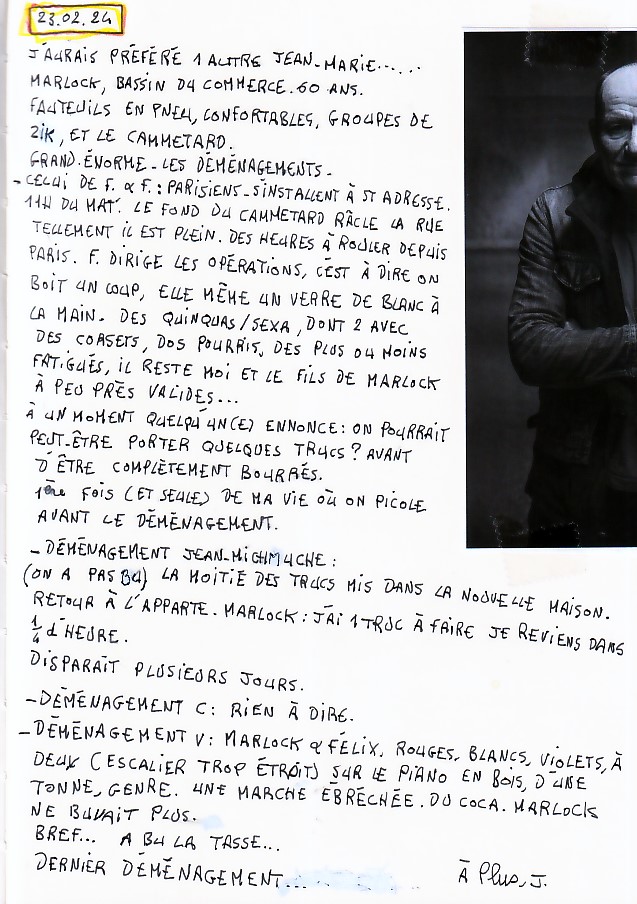 23.02.24
J'AURAIS PRÉFÉRÉ 1 AUTRE JEAN-MARIE......
MARLOCK, BASSIN DU COMMERCE. 60 ANS.
FAUTEUILS EN PNEU, CONFORTABLES, GROUPES DE
ZIK, ET LE CAMMETARD.
GRAND. ÉNORME - LES DÉMÉNAGEMENTS -
- CELUI DE F. & F. : PARISIENS - S'INSTALLENT À ST ADRESSE.
11H DU MAT'. LE FOND DU CAMMETARD RÂCLE LA RUE
TELLEMENT IL EST PLEIN. DES HEURES À ROULER DEPUIS
PARIS. F. DIRIGE LES OPÉRATIONS, C'EST À DIRE ON
BOIT UN COUP, ELLE MÊME UN VERRE DE BLANC À
LA MAIN. DES QUINQUAS/SEXA, DONT 2 AVEC
DES CORSETS, DOS POURRIS, DES PLUS OU MOINS
FATIGUÉS, IL RESTE MOI ET LE FILS DE MARLOCK
À PEU PRÈS VALIDES...
À UN MOMENT QUELQU'UN(E) ENNONCE : ON POURRAIT
PEUT-ÊTRE PORTER QUELQUES TRUCS ? AVANT
D'ÊTRE COMPLÈTEMENT BOURRÉS.
1ère FOIS (ET SEULE) DE MA VIE OÙ ON PICOLE
AVANT LE DÉMÉNAGEMENT.
- DÉMÉNAGEMENT JEAN-MICHMUCHE :
(ON A PAS BU) LA MOITIÉ DES TRUCS MIS DANS LA NOUVELLE MAISON.
RETOUR À L'APPARTE. MARLOCK : J'AI 1 TRUC À FAIRE JE REVIENS DANS
1/4 d'HEURE.
DISPARAÎT PLUSIEURS JOURS.
- DÉMÉNAGEMENT C : RIEN À DIRE.
- DÉMÉNAGEMENT V : MARLOCK & FÉLIX, ROUGES, BLANCS, VIOLETS, À
DEUX (ESCALIER TROP ÉTROIT) SUR LE PIANO EN BOIS, D'UNE
TONNE, GENRE. UNE MARCHE ÉBRÉCHÉE. DU COCA. MARLOCK
NE BUVAIT PLUS.
BREF... A BU LA TASSE...
DERNIER DÉMÉNAGEMENT...
À Plus, J.